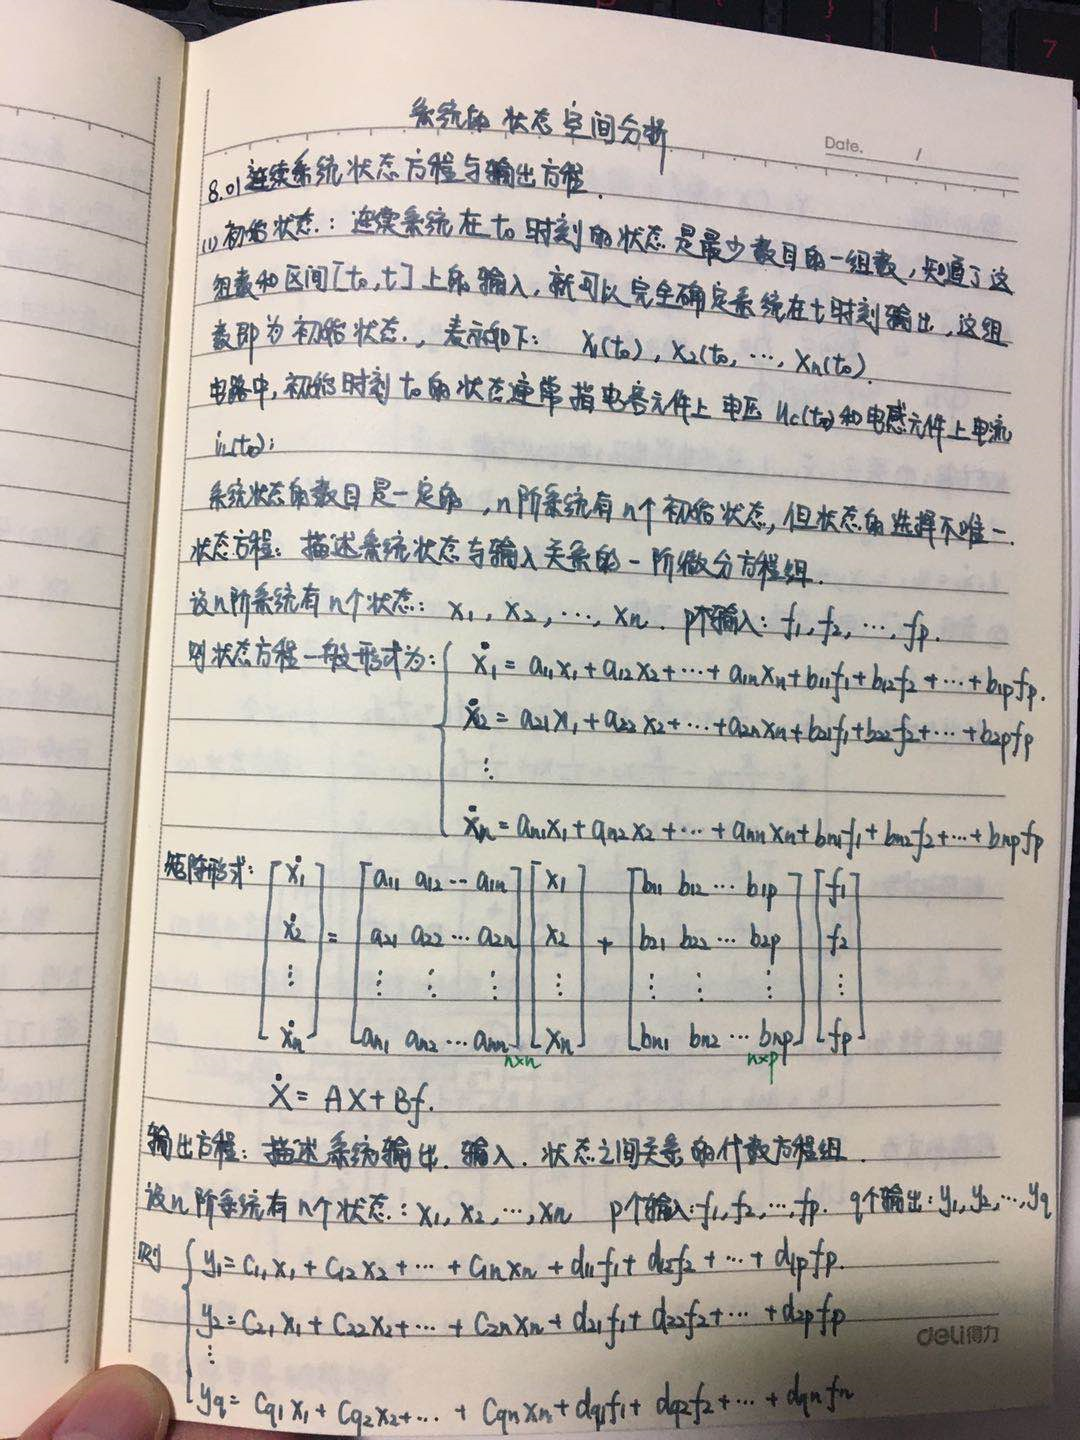 系统的状态空间分析
Date. /
8.01连续系统状态方程与输出方程.
(1)初始状态:连续系统在t₀时刻的状态是最少数目的一组数,知道了这
组数和区间[t₀,t]上的输入,就可以完全确定系统在t时刻输出,这组
数即为初始状态.,表示如下: x₁(t₀),x₂(t₀,⋯,xₙ(t₀).
电路中,初始时刻t₀的状态通常指电容元件上电压uc(t₀)和电感元件上电流
iL(t₀);
系统状态的数目是一定的,n阶系统有n个初始状态,但状态的选择不唯一.
状态方程:描述系统状态与输入关系的一阶微分方程组.
设n阶系统有n个状态: x₁,x₂,⋯,xₙ. p个输入:f₁,f₂,⋯,fp.
则状态方程一般形式为: { ẋ₁=a₁₁x₁+a₁₂x₂+⋯+a₁ₙxₙ+b₁₁f₁+b₁₂f₂+⋯+b₁pfp.
ẋ₂=a₂₁x₁+a₂₂x₂+⋯+a₂ₙxₙ+b₂₁f₁+b₂₂f₂+⋯+b₂pfp
⋮
ẋₙ=aₙ₁x₁+aₙ₂x₂+⋯+aₙₙxₙ+bₙ₁f₁+bₙ₂f₂+⋯+bₙpfp
矩阵形式: [ẋ₁ [a₁₁ a₁₂ ⋯ a₁ₙ] [x₁] [b₁₁ b₁₂ ⋯ b₁p] [f₁]
ẋ₂ = a₂₁ a₂₂ ⋯ a₂ₙ x₂ + b₂₁ b₂₂ ⋯ b₂p f₂
⋮ ⋮ ⋮ ⋮ ⋮ ⋮ ⋮ ⋮ ⋮
ẋₙ] aₙ₁ aₙ₂ ⋯ aₙₙ] xₙ] bₙ₁ bₙ₂ ⋯ bₙp] fp]
n×n n×p
Ẋ=AX+Bf.
输出方程:描述系统输出.输入.状态之间关系的代数方程组.
设n阶系统有n个状态:x₁,x₂,⋯,xₙ p个输入:f₁,f₂,⋯,fp. q个输出:y₁,y₂,⋯,yq
则 { y₁=c₁₁x₁+c₁₂x₂+⋯+c₁ₙxₙ+d₁₁f₁+d₁₂f₂+⋯+d₁pfp.
y₂=c₂₁x₁+c₂₂x₂+⋯+c₂ₙxₙ+d₂₁f₁+d₂₂f₂+⋯+d₂pfp
deli得力
⋮
yq=cq₁x₁+cq₂x₂+⋯+cqₙxₙ+dq₁f₁+dq₂f₂+⋯+dqₙfₙ